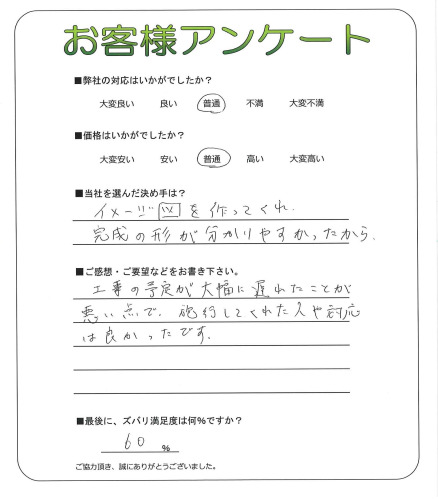 お客様アンケート
■弊社の対応はいかがでしたか?
大変良い 良い 普通 不満 大変不満
■価格はいかがでしたか?
大変安い 安い 普通 高い 大変高い
■当社を選んだ決め手は?
イメージ図を作ってくれ.
完成の形が分かりやすかったから.
■ご感想・ご要望などをお書き下さい。
工事の予定が大幅に遅れたことが
悪い点で. 施行してくれた人や対応
は良かったです.
■最後に、ズバリ満足度は何%ですか?
60 %
ご協力頂き、誠にありがとうございました。